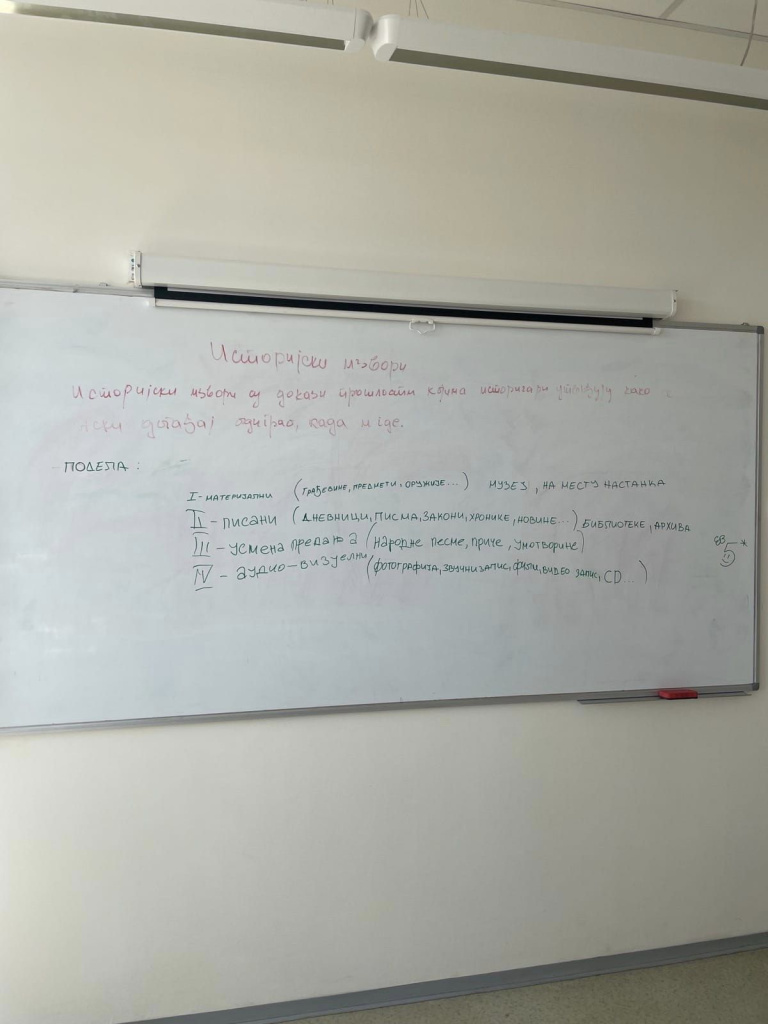 Историјски извори
Историјски извори су докази прошлости којима историчари утврђују како
ски догађај одиграо, када и где.
- ПОДЕЛА :
I - МАТЕРИЈАЛНИ (ГРАЂЕВИНЕ, ПРЕДМЕТИ, ОРУЖИЈЕ...) МУЗЕЈ, НА МЕСТУ НАСТАНКА
II - ПИСАНИ (ДНЕВНИЦИ, ПИСМА, ЗАКОНИ, ХРОНИКЕ, НОВИНЕ...) БИБЛИОТЕКЕ, АРХИВА
III - УСМЕНА ПРЕДАЊА (НАРОДНЕ ПЕСМЕ, ПРИЧЕ, УМОТВОРИНЕ)
IV - АУДИО-ВИЗУЕЛНИ (ФОТОГРАФИЈА, ЗВУЧНИ ЗАПИС, ФИЛМ, ВИДЕО ЗАПИС, CD...)
5*